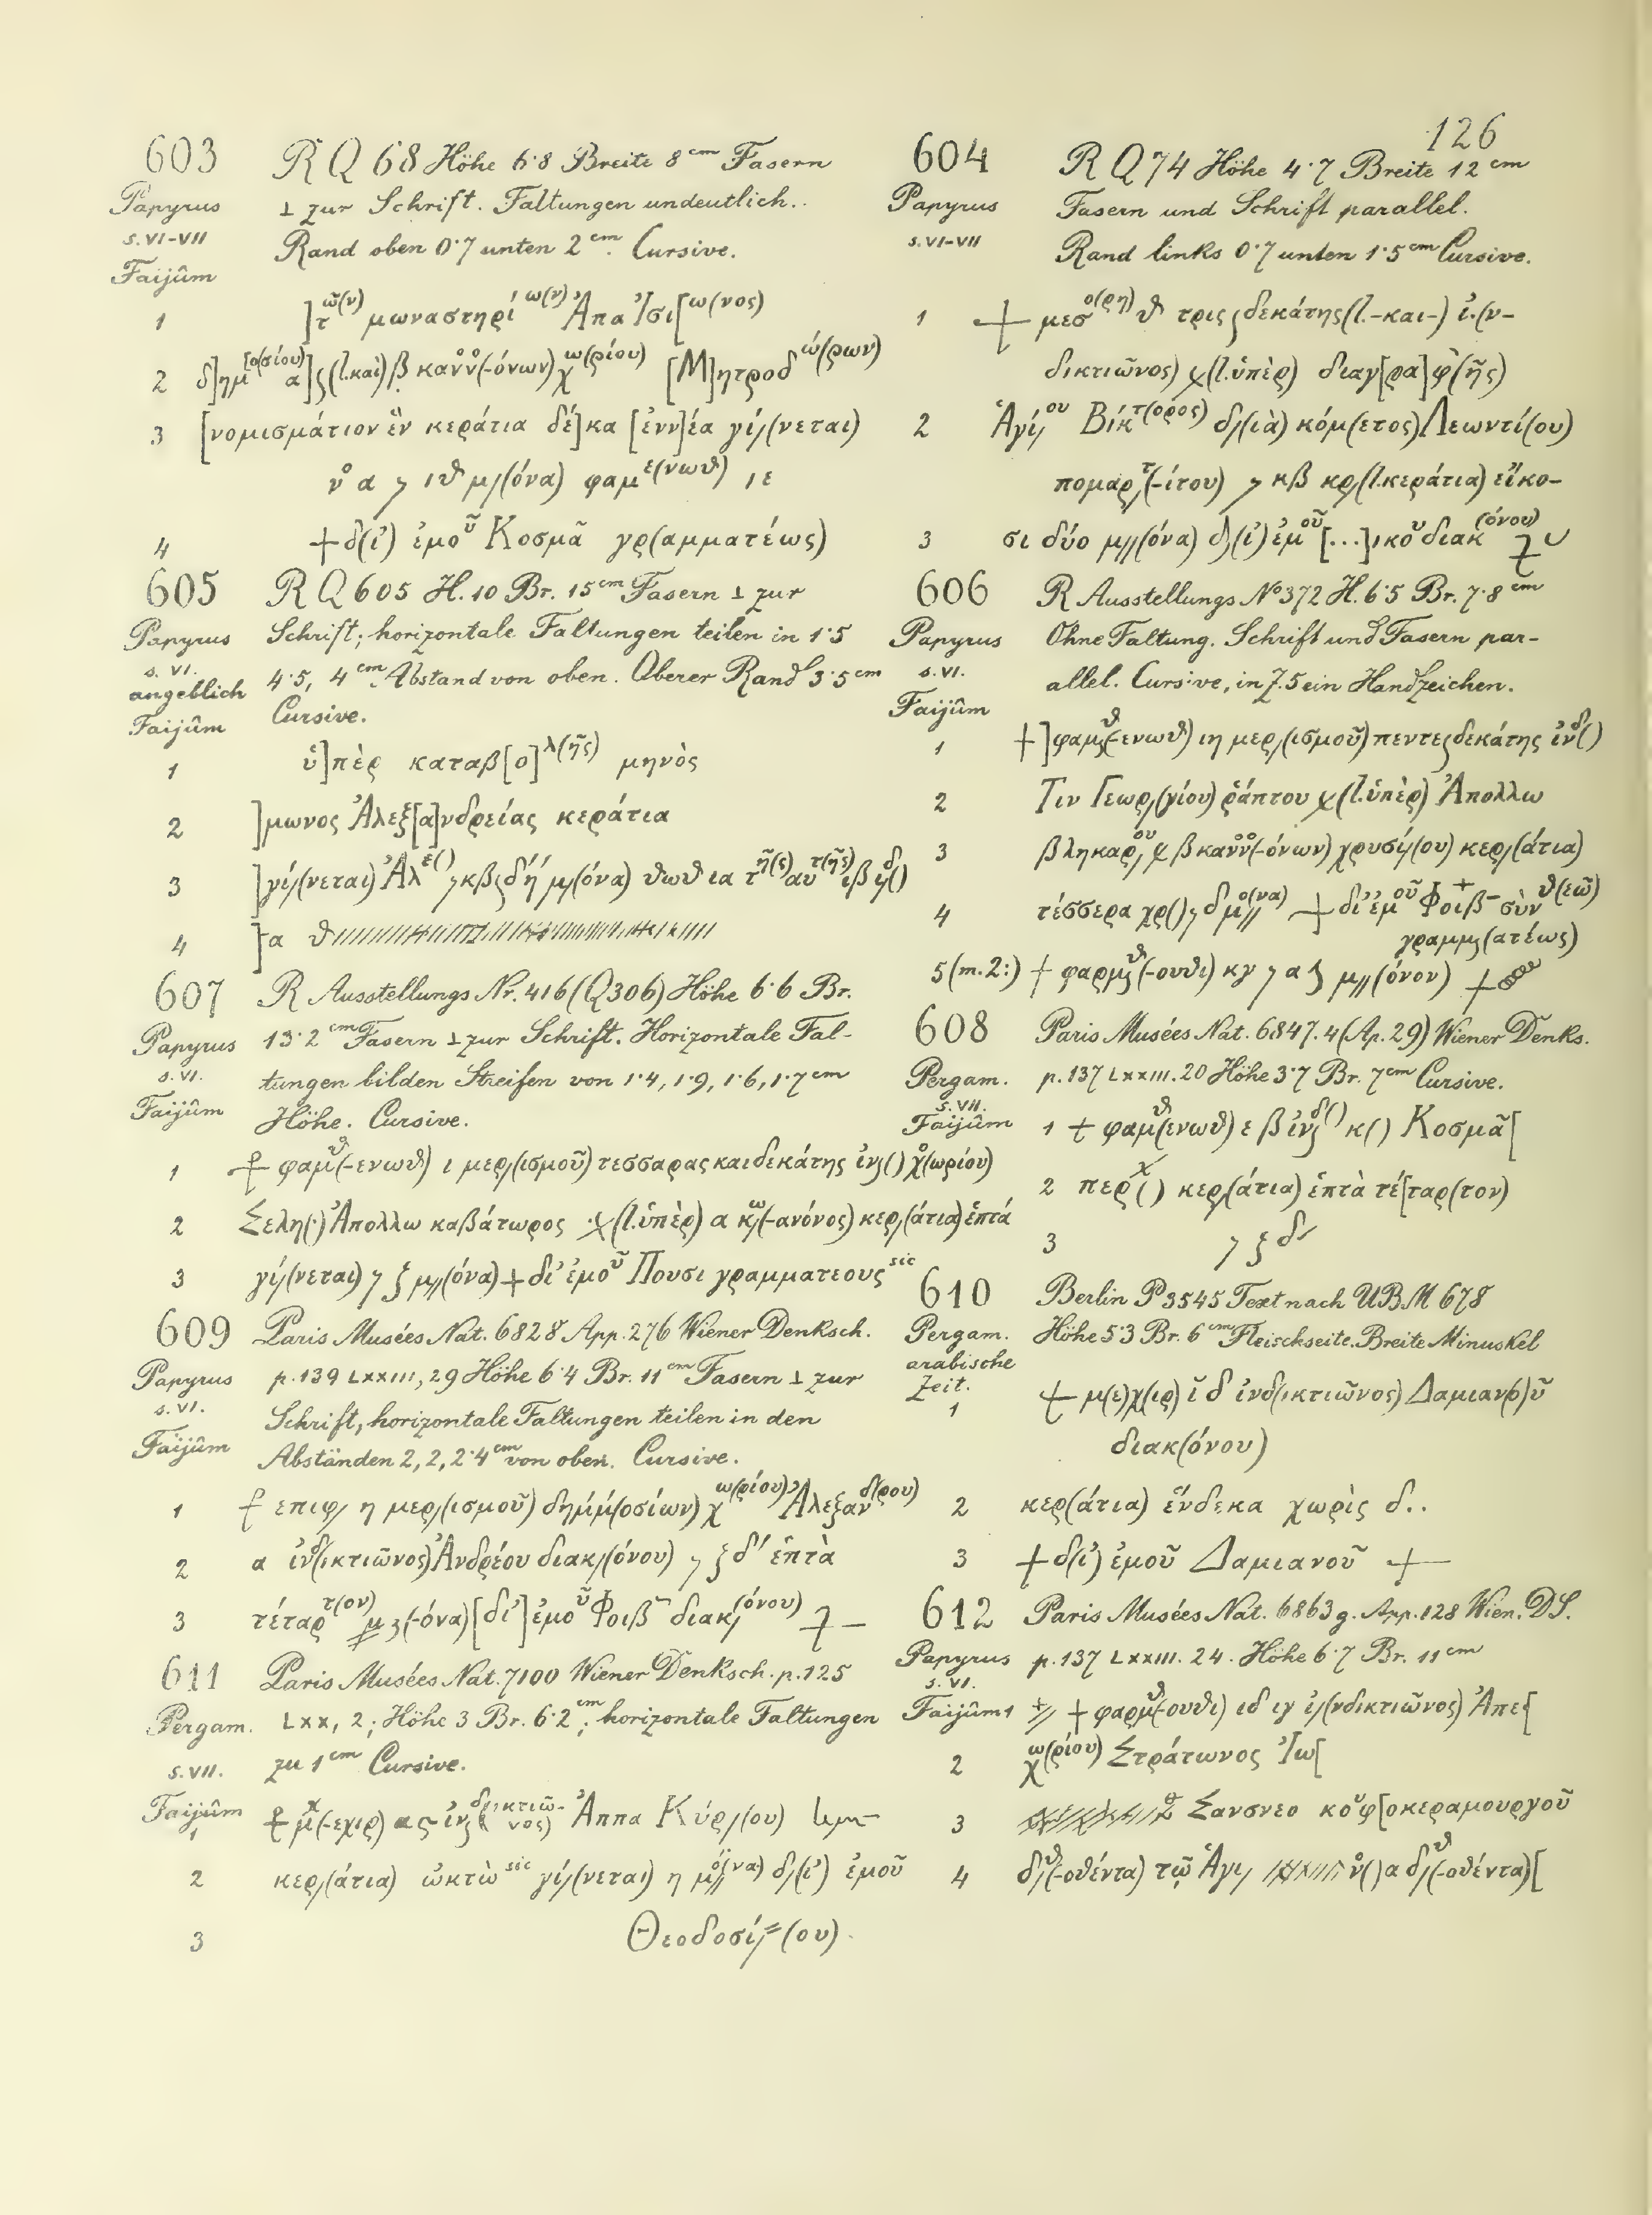 126
603 R Q 68 Höhe 6·8 Breite 8 cm Fasern
Papyrus ⊥ zur Schrift. Faltungen undeutlich..
s. VI-VII Rand oben 0·7 unten 2 cm. Cursive.
Faijûm
1 ]τῶ(ν) μωναστηρίω(ν) Ἀπα Ἰσι[ω(νος)
2 δ]ημ[ο(σίου) α]ϛ(l. καὶ) β κανν̊(-όνων) χω(ρίου) [Μ]ητροδώ(ρων)
3 [νομισμάτιον ἓν κεράτια δέ]κα [ἐνν]έα γί/(νεται)
ν̊ α 𝛾 ιθ μ/(όνα) φαμε(νωθ) ιε
4 +δ(ι') ἐμοῦ Κοσμᾶ γρ(αμματέως)
604 R Q 74 Höhe 4·7 Breite 12 cm
Papyrus Fasern und Schrift parallel.
s. VI-VII Rand links 0·7 unten 1·5 cm Cursive.
1 + μεσο(ρη) θ τρις ϛ δεκάτης (l.-και-) ἰ.(ν-
δικτιῶνος) χ(l. ὑπὲρ) διαγ[ρα]φ(ῆς)
2 Ἁγί/ου Βίκτ(ορος) δ/(ιὰ) κόμ(ετος) Λεωντί(ου)
πομαρ/τ(-ίτου) 𝛾 κβ κρ/(l. κεράτια) εἴκο-
3 σι δύο μ//(όνα) δ/(ι') ἐμοῦ [...]ικοῦ διακ(όνου)
605 R Q 605 H. 10 Br. 15 cm Fasern ⊥ zur
Papyrus Schrift; horizontale Faltungen teilen in 1·5
s. VI. 4·5, 4 cm Abstand von oben. Oberer Rand 3·5 cm
angeblich Cursive.
Faijûm
1 ὑ]πὲρ καταβ[ο]λ(ῆς) μηνὸς
2 ]μωνος Ἀλεξ[α]νδρείας κεράτια
3 ]γί/(νεται) Ἀλε() 𝛾 κβϛ δ´ή μ/(όνα) θωθ ια τῆ(ς) αὐτ(ῆς) ιβ ἰδ()
4 ]α θ
606 R Ausstellungs No 372 H. 6·5 Br. 7·8 cm
Papyrus Ohne Faltung. Schrift und Fasern par-
s. VI. allel. Cursive, in Z. 5 ein Handzeichen.
Faijûm
1 +]φαμθ(-ενωθ) ιη μερ/(ισμοῦ) πεντεϛδεκάτης ἰνδ()
2 Τιν Γεωρ/(γίου) ῥάπτου χ(l. ὑπὲρ) Ἀπολλω
3 βληκαρ/ου χ β κανν̊(-όνων) χρυσί/(ου) κερ/(άτια)
4 τέσσερα χρ() 𝛾 δ μ//ο(να) + δι' ἐμοῦ Φοιβ σὺν θ(εῶ)
γραμμϛ(ατέως)
5 (m. 2:) + φαρμθ(-ουθι) κγ 𝛾 α ϛ μ//(όνον) +
607 R Ausstellungs Nr. 416 (Q 306) Höhe 6·6 Br.
Papyrus 13·2 cm Fasern ⊥ zur Schrift. Horizontale Fal-
s. VI. tungen bilden Streifen von 1·4, 1·9, 1·6, 1·7 cm
Faijûm Höhe. Cursive.
1 + φαμθ(-ενωθ) ι μερ/(ισμοῦ) τεσσαρας και δεκάτης ἰνϛ() χ(ωρίου)
2 Σελη(·) Ἀπολλω καβάτωρος χ(l. ὑπὲρ) α κω(-ανόνος) κερ/(άτια) ἑπτά
3 γί/(νεται) 𝛾 ζ μ//(όνα) + δι' ἐμοῦ Πουσι γραμματεους sic
608 Paris Musées Nat. 6847. 4 (Ap. 29) Wiener Denks.
Pergam. p. 137 LXXIII. 20 Höhe 3·7 Br. 7 cm Cursive.
s. VII.
Faijûm
1 + φαμθ(ενωθ) ε β ἰνϛδ() κ() Κοσμᾶ[
2 περχ() κερ/(άτια) ἑπτὰ τέ[ταρ(τον)
3 𝛾 ζ δ´
609 Paris Musées Nat. 6828 App. 276 Wiener Denksch.
Papyrus p. 139 LXXIII, 29 Höhe 6·4 Br. 11 cm Fasern ⊥ zur
s. VI. Schrift, horizontale Faltungen teilen in den
Faijûm Abständen 2, 2, 2·4 cm von oben. Cursive.
1 + επιφ/ η μερ/(ισμοῦ) δημμ(οσίων) χω(ρίου) Ἀλεξανδ(ρου)
2 α ἰνδ(ικτιῶνος) Ἀνδρέου διακ/(όνου) 𝛾 ζ δ´ ἑπτὰ
3 τέταρτ(ον) μϛ(-όνα) [δι'] ἐμοῦ Φοιβ διακ/(όνου)
610 Berlin P 3545 Text nach UBM 678
Pergam. Höhe 5·3 Br. 6 cm Fleischseite. Breite Minuskel
arabische
Zeit.
1 + μ(ε)χ(ιρ) ῑ δ ἰνδ(ικτιῶνος) Δαμιαν(ο)ῦ
διακ(όνου)
2 κερ(άτια) ἕνδεκα χωρὶς δ..
3 + δ(ι') ἐμοῦ Δαμιανοῦ +
611 Paris Musées Nat. 7100 Wiener Denksch. p. 125
Pergam. LXX, 2; Höhe 3 Br. 6·2 cm; horizontale Faltungen
s. VII. zu 1 cm Cursive.
Faijûm
1 + μχ(-εχιρ) ας ἰνϛδ(ικτιῶ-νος) Ἀππα Κύρ/(ου)
2 κερ/(άτια) ὠκτὼ sic γί/(νεται) η μ//ό(να) δ/(ι') ἐμοῦ
3 Θεοδοσί/(ου).
612 Paris Musées Nat. 6863 g. App. 128 Wien. DS.
Papyrus p. 137 LXXIII. 24. Höhe 6·7 Br. 11 cm
s. VI.
Faijûm 1 + φαρμθ(-ουθι) ιδ ιγ ἰ/(νδικτιῶνος) Ἀπε[
2 χω(ρίου) Στράτωνος Ἰω[
3 Σανσνεο κούφ[οκεραμουργοῦ
4 δ/θ(-οθέντα) τῷ Ἁγι/ ν̊() α δ/θ(-οθέντα)[